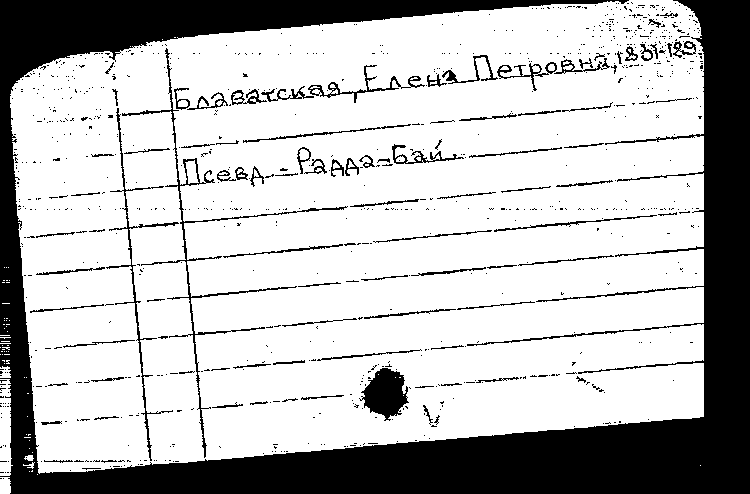 Блаватская, Елена Петровна, 1831-189
Псевд - Радда-Бай.
V